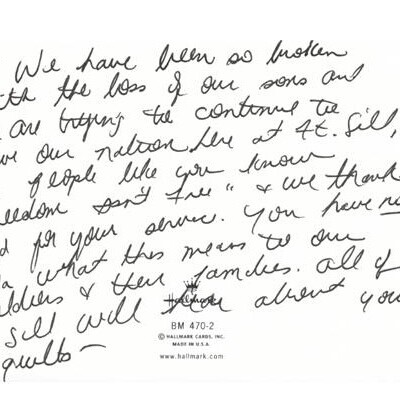 We have been so broken
with the loss of our sons and
are trying to continue to
our nation here at Ft. Sill,
people like you know
isn't free" & we thank
for your service. You have no
what this means to our
& their families. All of
Sill will hear about you
quilts -
Hallmark
BM 470-2
© HALLMARK CARDS, INC.
MADE IN U.S.A.
www.hallmark.com